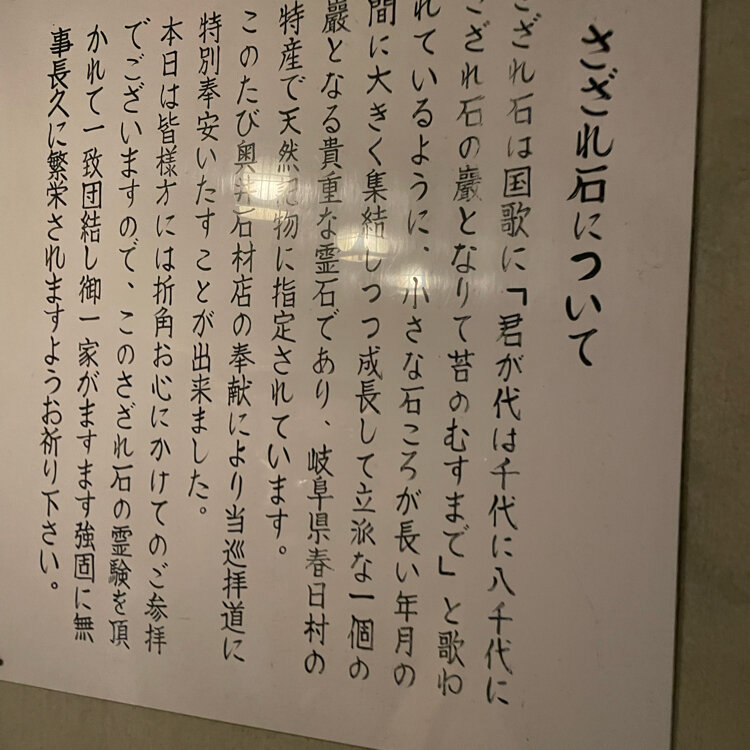 さざれ石について
ざれ石は国歌に「君が代は千代に八千代に
ざれ石の巖となりて苔のむすまで」と歌わ
れているように、小さな石ころが長い年月の
間に大きく集結しつつ成長して立派な一個の
巖となる貴重な霊石であり、岐阜県春日村の
特産で天然記物に指定されています。
このたび奥井石材店の奉献により当巡拝道に
特別奉安いたすことが出来ました。
本日は皆様方には折角お心にかけてのご参拝
でございますので、このさざれ石の霊験を頂
かれて一致団結し御一家がますます強固に無
事長久に繁栄されますようお祈り下さい。